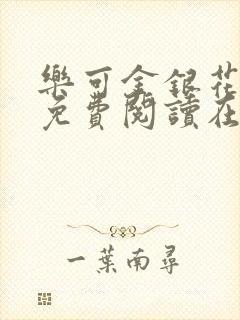 樂可金銀花
免費閱讀在
一葉南尋